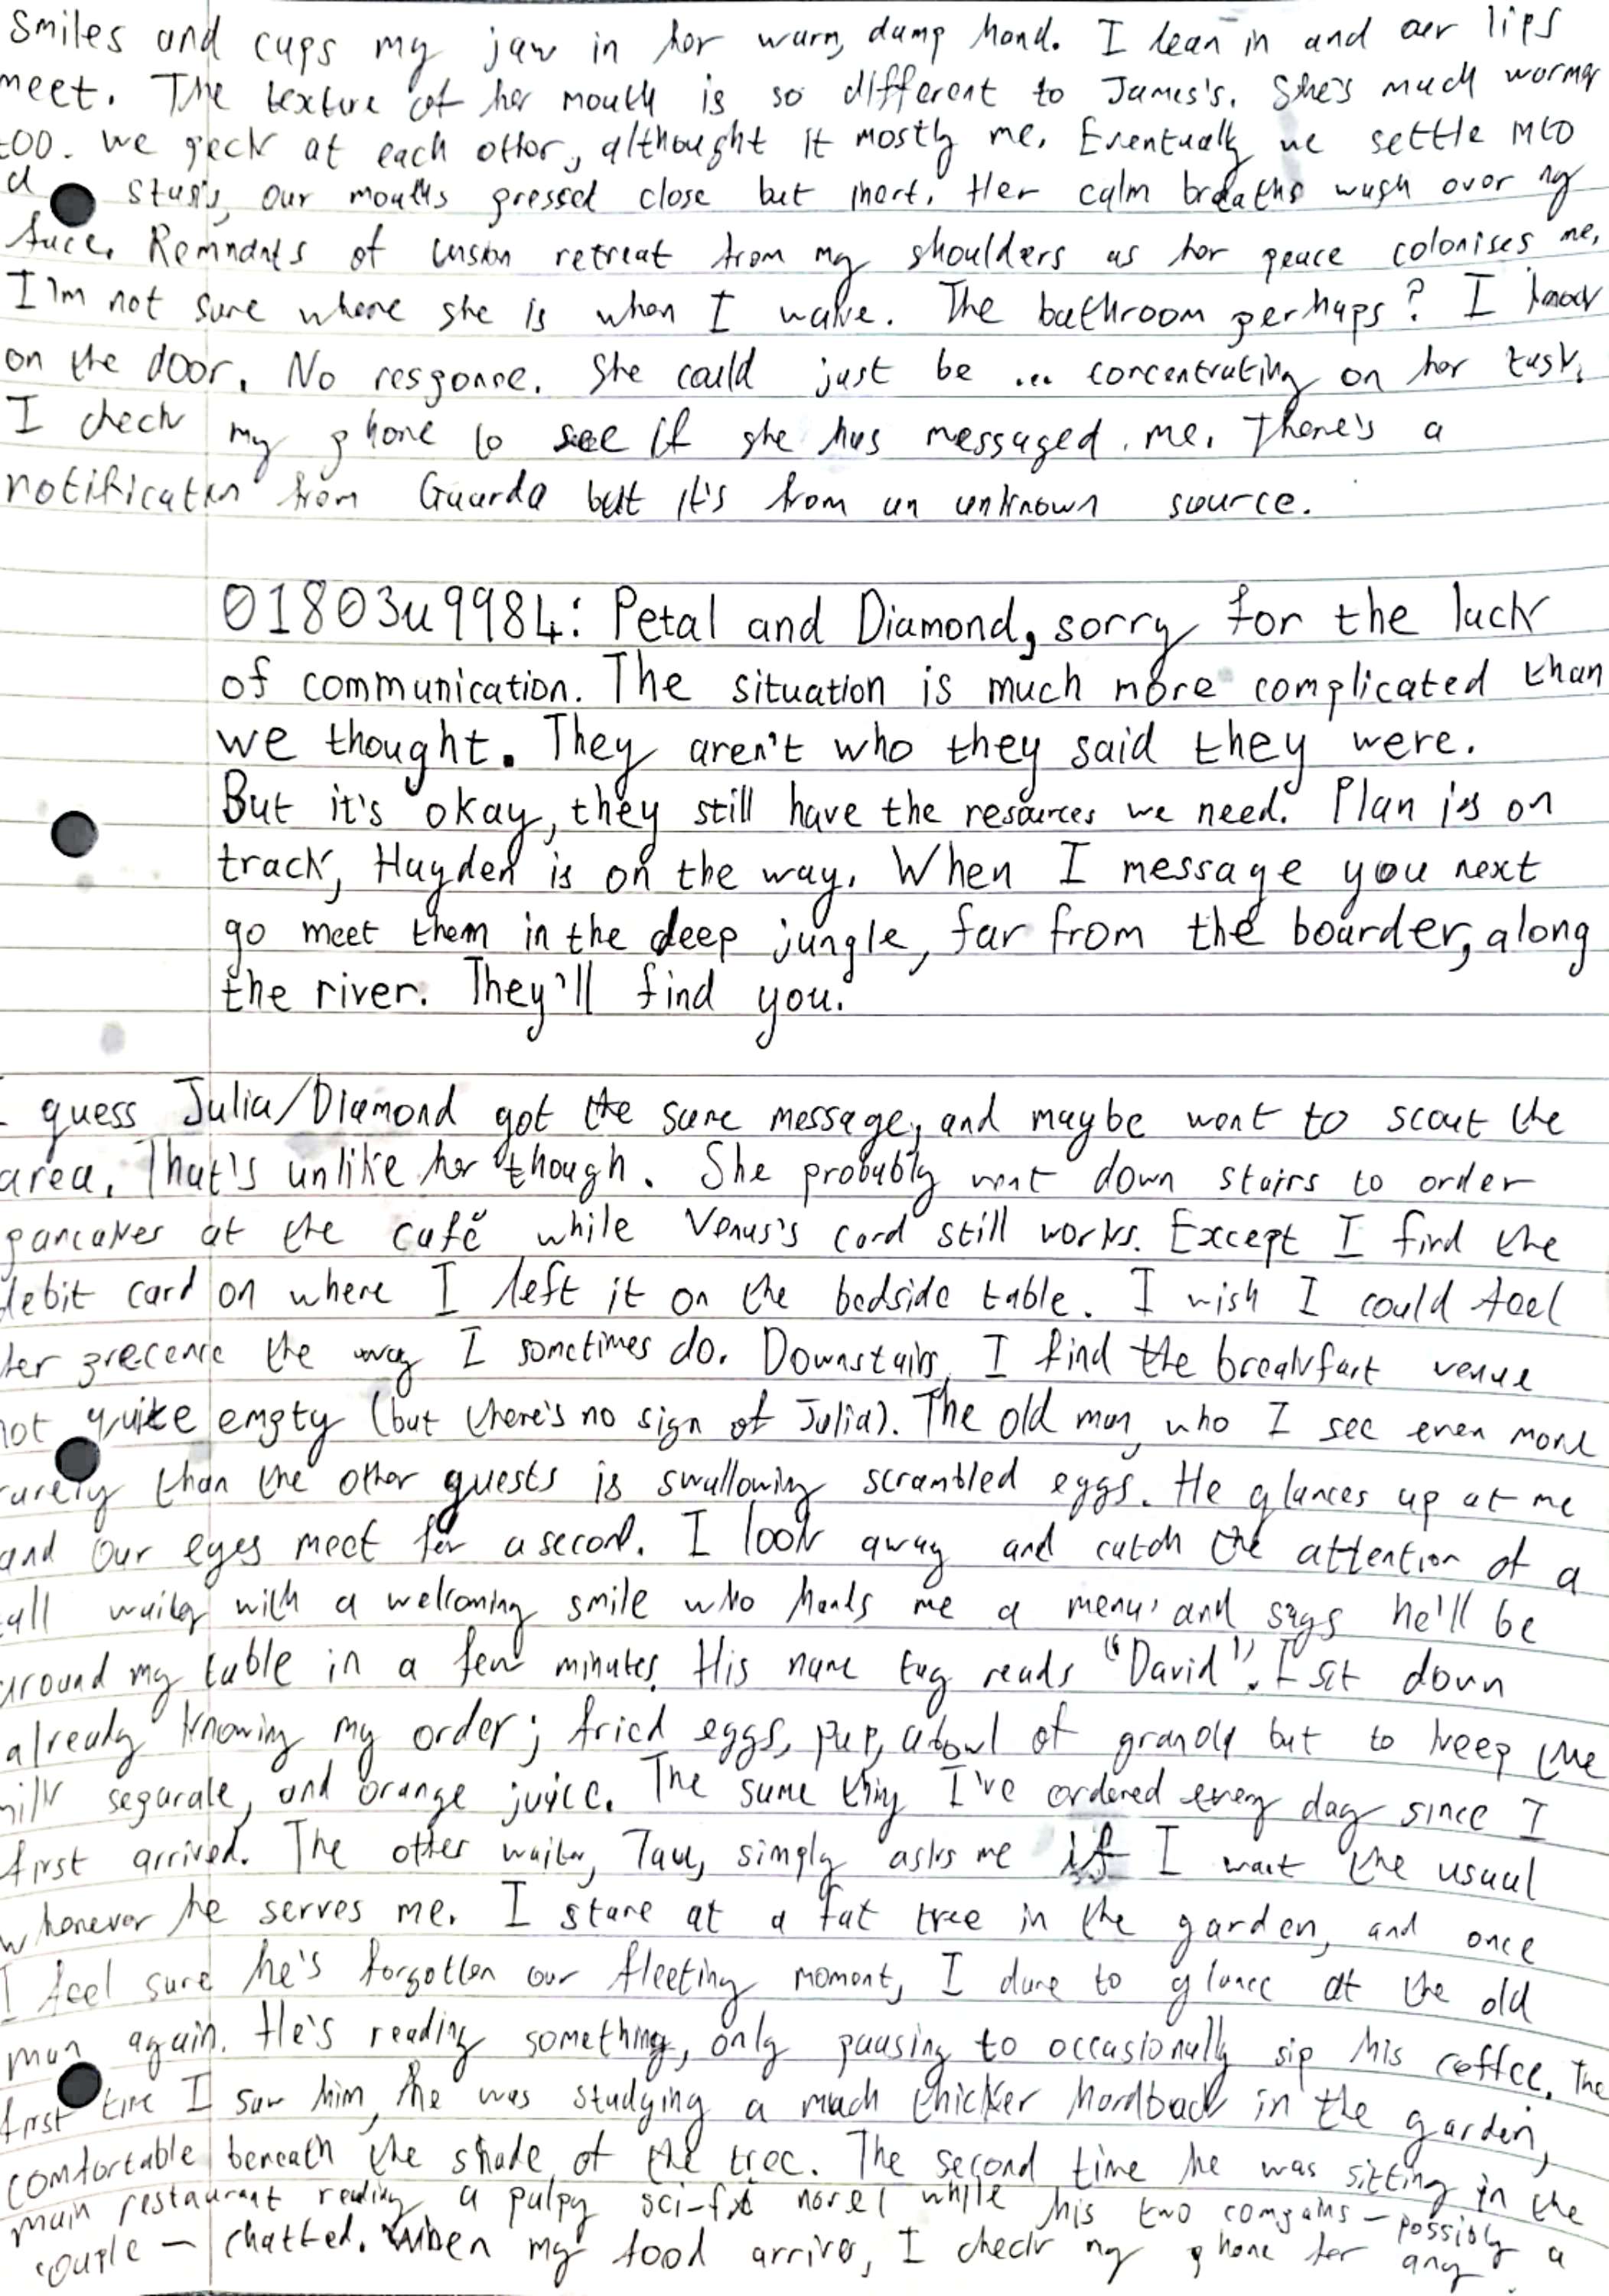 smiles and cups my jaw in her warm, damp hand. I lean in and our lips
meet. The texture of her mouth is so different to James's. She's much warmer
too. We peck at each other, althought it mostly me. Eventually we settle into
a stasis, our mouths pressed close but inert. Her calm breaths wash over my
face. Remnants of tension retreat from my shoulders as her peace colonises me.
I'm not sure where she is when I wake. The bathroom perhaps? I knock
on the door. No response. She could just be ... concentrating on her task.
I check my phone to see if she has messaged me. There's a
notification from Guarda but it's from an unknown source.
01803u9984: Petal and Diamond, sorry for the lack
of communication. The situation is much more complicated than
we thought. They aren't who they said they were.
But it's okay, they still have the resources we need. Plan is on
track, Hayden is on the way. When I message you next
go meet them in the deep jungle, far from the boarder, along
the river. They'll find you.
I guess Julia/Diamond got the same message, and maybe went to scout the
area. That's unlike her though. She probably went down stairs to order
pancakes at the café while Venus's card still works. Except I find the
debit card on where I left it on the bedside table. I wish I could feel
her precence the way I sometimes do. Downstairs, I find the breakfast venue
not quite empty (but there's no sign of Julia). The old man, who I see even more
rarely than the other guests is swallowing scrambled eggs. He glances up at me
and our eyes meet for a second. I look away and catch the attention of a
tall waiter with a welcoming smile who hands me a menu and says he'll be
around my table in a few minutes. His name tag reads "David". I sit down
already knowing my order; fried eggs, pap, a bowl of granola but to keep the
milk separate, and orange juice. The same thing I've ordered every day since I
first arrived. The other waiter, Tau, simply asks me if I want the usual
whenever he serves me. I stare at a fat tree in the garden, and once
I feel sure he's forgotten our fleeting moment, I dare to glance at the old
man again. He's reading something, only pausing to occasionally sip his coffee. The
first time I saw him, he was studying a much thicker hardback in the garden,
comfortable beneath the shade of the tree. The second time he was sitting in the
main restaurant reading a pulpy sci-fi novel while his two compains – possibly a
couple – chatted. When my food arrives, I check my phone for any